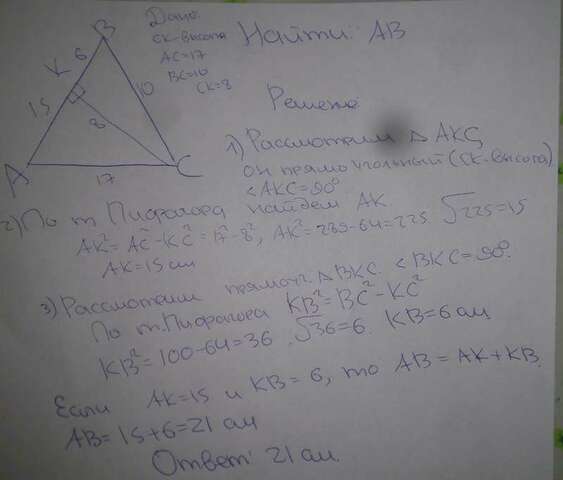 B
Дано:
CK-высота
AC=17
BC=10
CK=8
Найти: AB
6
K
15
10
8
A
17
C
Решение
1) Рассмотрим △ AKC,
он прямоугольный (CK-высота)
<AKC=90°
2) По т. Пифагора найдем AK
AK²=AC²-KC²=17²-8², AK²=289-64=225 √225=15
AK=15 см
3) Рассмотрим прямоуг. △BKC. <BKC=90°.
По т.Пифагора KB²=BC²-KC²
KB²=100-64=36. √36=6. KB=6 см
Если AK=15 и KB=6, то AB=AK+KB.
AB=15+6=21 см
Ответ: 21 см.